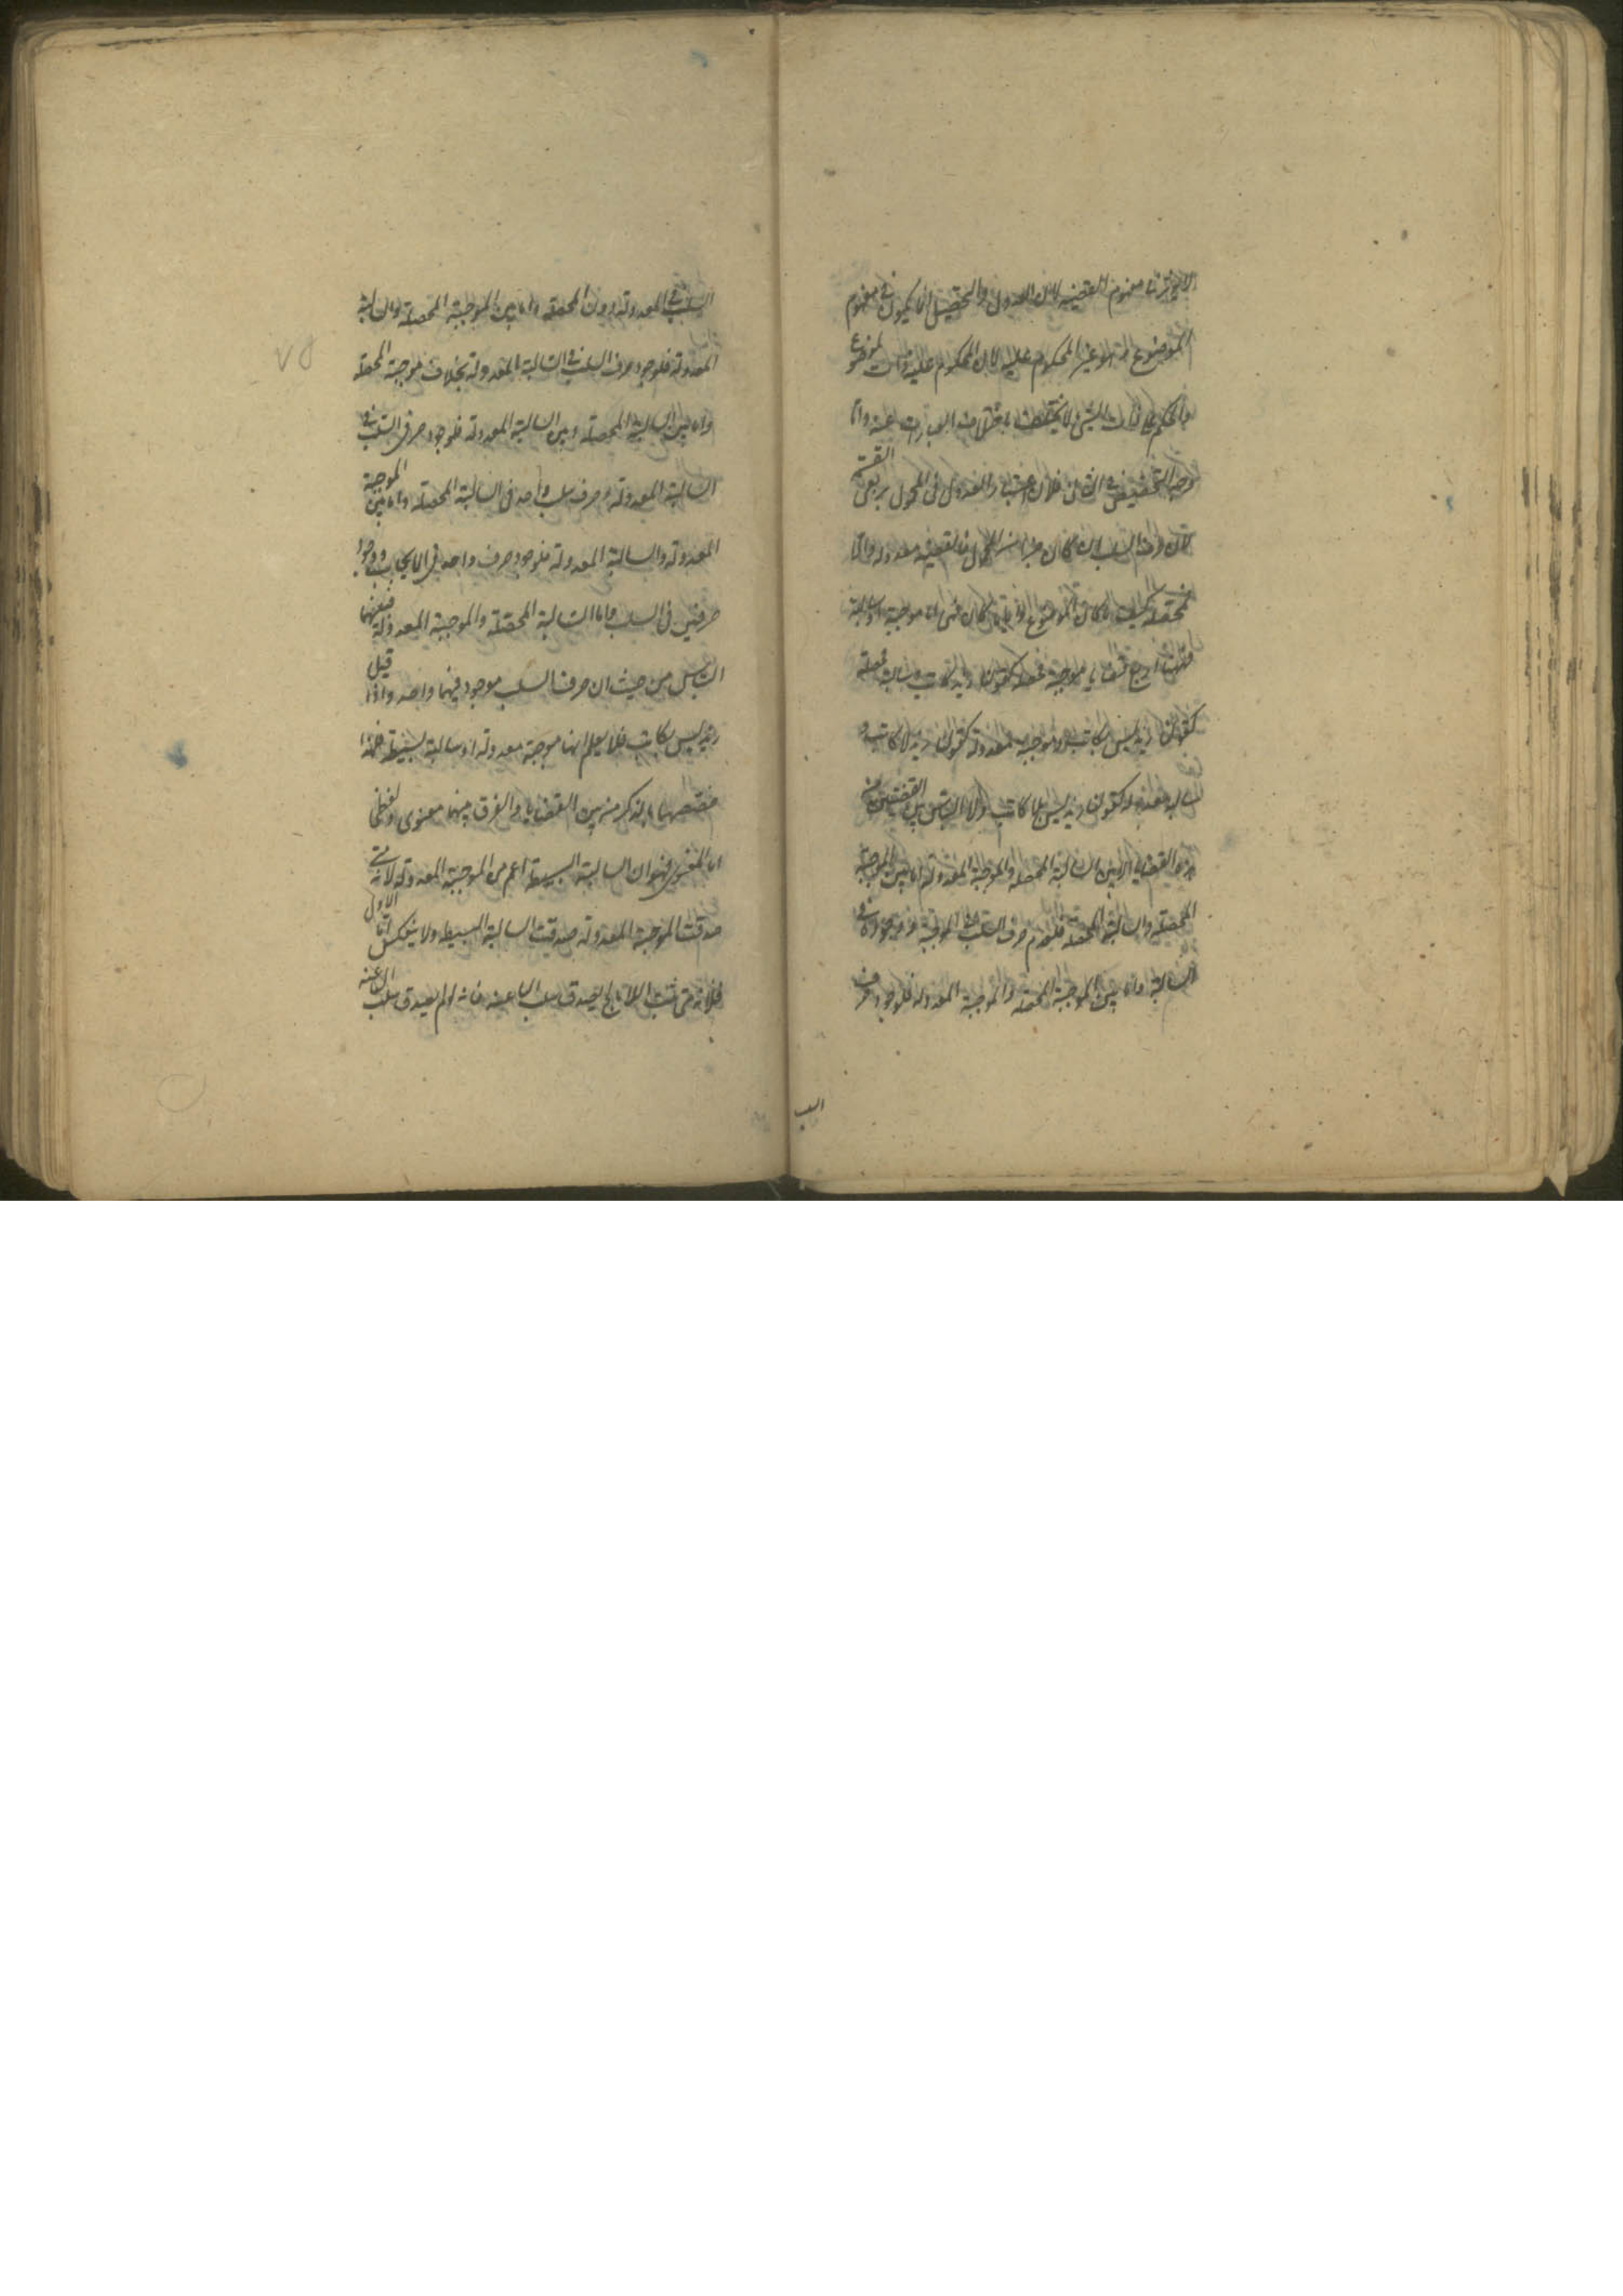 لا يؤثر في مفهوم القضية لان العدول والتحصيل انما يكون في مفهوم
الموضوع وهو غير المحكوم عليه لان المحكوم عليه ذات الموضوع
والحكم على ذات الشيء لا يختلف باختلاف العبارات عنه واما
وجه التخصيص في الثاني فلان اعتبار العدول في المحمول يربع القسمة
لان حرف السلب ان كان جزءا من المحمول فالقضية معدولة والا
فمحصلة كيف ما كان الموضوع وايا ما كان فهي اما موجبة او سالبة
فههنا اربع قضايا موجبة محصلة كقولنا زيد كاتب وسالبة محصلة
كقولنا زيد ليس بكاتب وموجبة معدولة كقولنا زيد لا كاتب و
سالبة معدولة كقولنا زيد ليس بلا كاتب ولا التباس بين القضيتين من
هذه القضايا الا بين السالبة المحصلة والموجبة المعدولة اما بين الموجبة
المحصلة والسالبة المحصلة فلعدم حرف السلب في الموجبة ووجوده في
السالبة واما بين الموجبة المحصلة والموجبة المعدولة فلوجود حرف
السلب
السلب في المعدولة دون المحصلة واما بين الموجبة المحصلة والسالبة
المعدولة فلوجود حرف السلب في السالبة المعدولة بخلاف موجبة المحصلة
واما بين السالبة المحصلة وبين السالبة المعدولة فلوجود حرفي السلب في
السالبة المعدولة وحرف سلب واحد في السالبة المحصلة واما بين الموجبة
المعدولة والسالبة المعدولة فلوجود حرف واحد في الايجاب ووجود
حرفين في السلب واما السالبة المحصلة والموجبة المعدولة فبينهما
التباس من حيث ان حرف السلب موجود فيهما واحد واذا قيل
زيد ليس بكاتب فلا يعلم انها موجبة معدولة او سالبة بسيطة فلهذا
خصصهما بالذكر من بين القضايا والفرق بينهما معنوي ولفظي
اما المعنوي فهو ان السالبة البسيطة اعم من الموجبة المعدولة لانه متى
صدقت الموجبة المعدولة صدقت السالبة البسيطة ولا ينعكس اما الاول
فلانه متى ثبت اللاباء لج يصدق سلب الباء عنه فانه لو لم يصدق سلب الباء عنه
٧٥